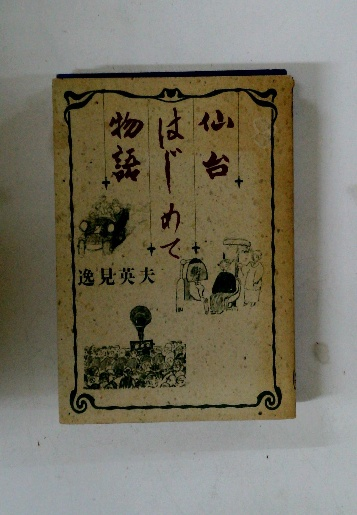 仙台
はじめて
物語
逸見英夫